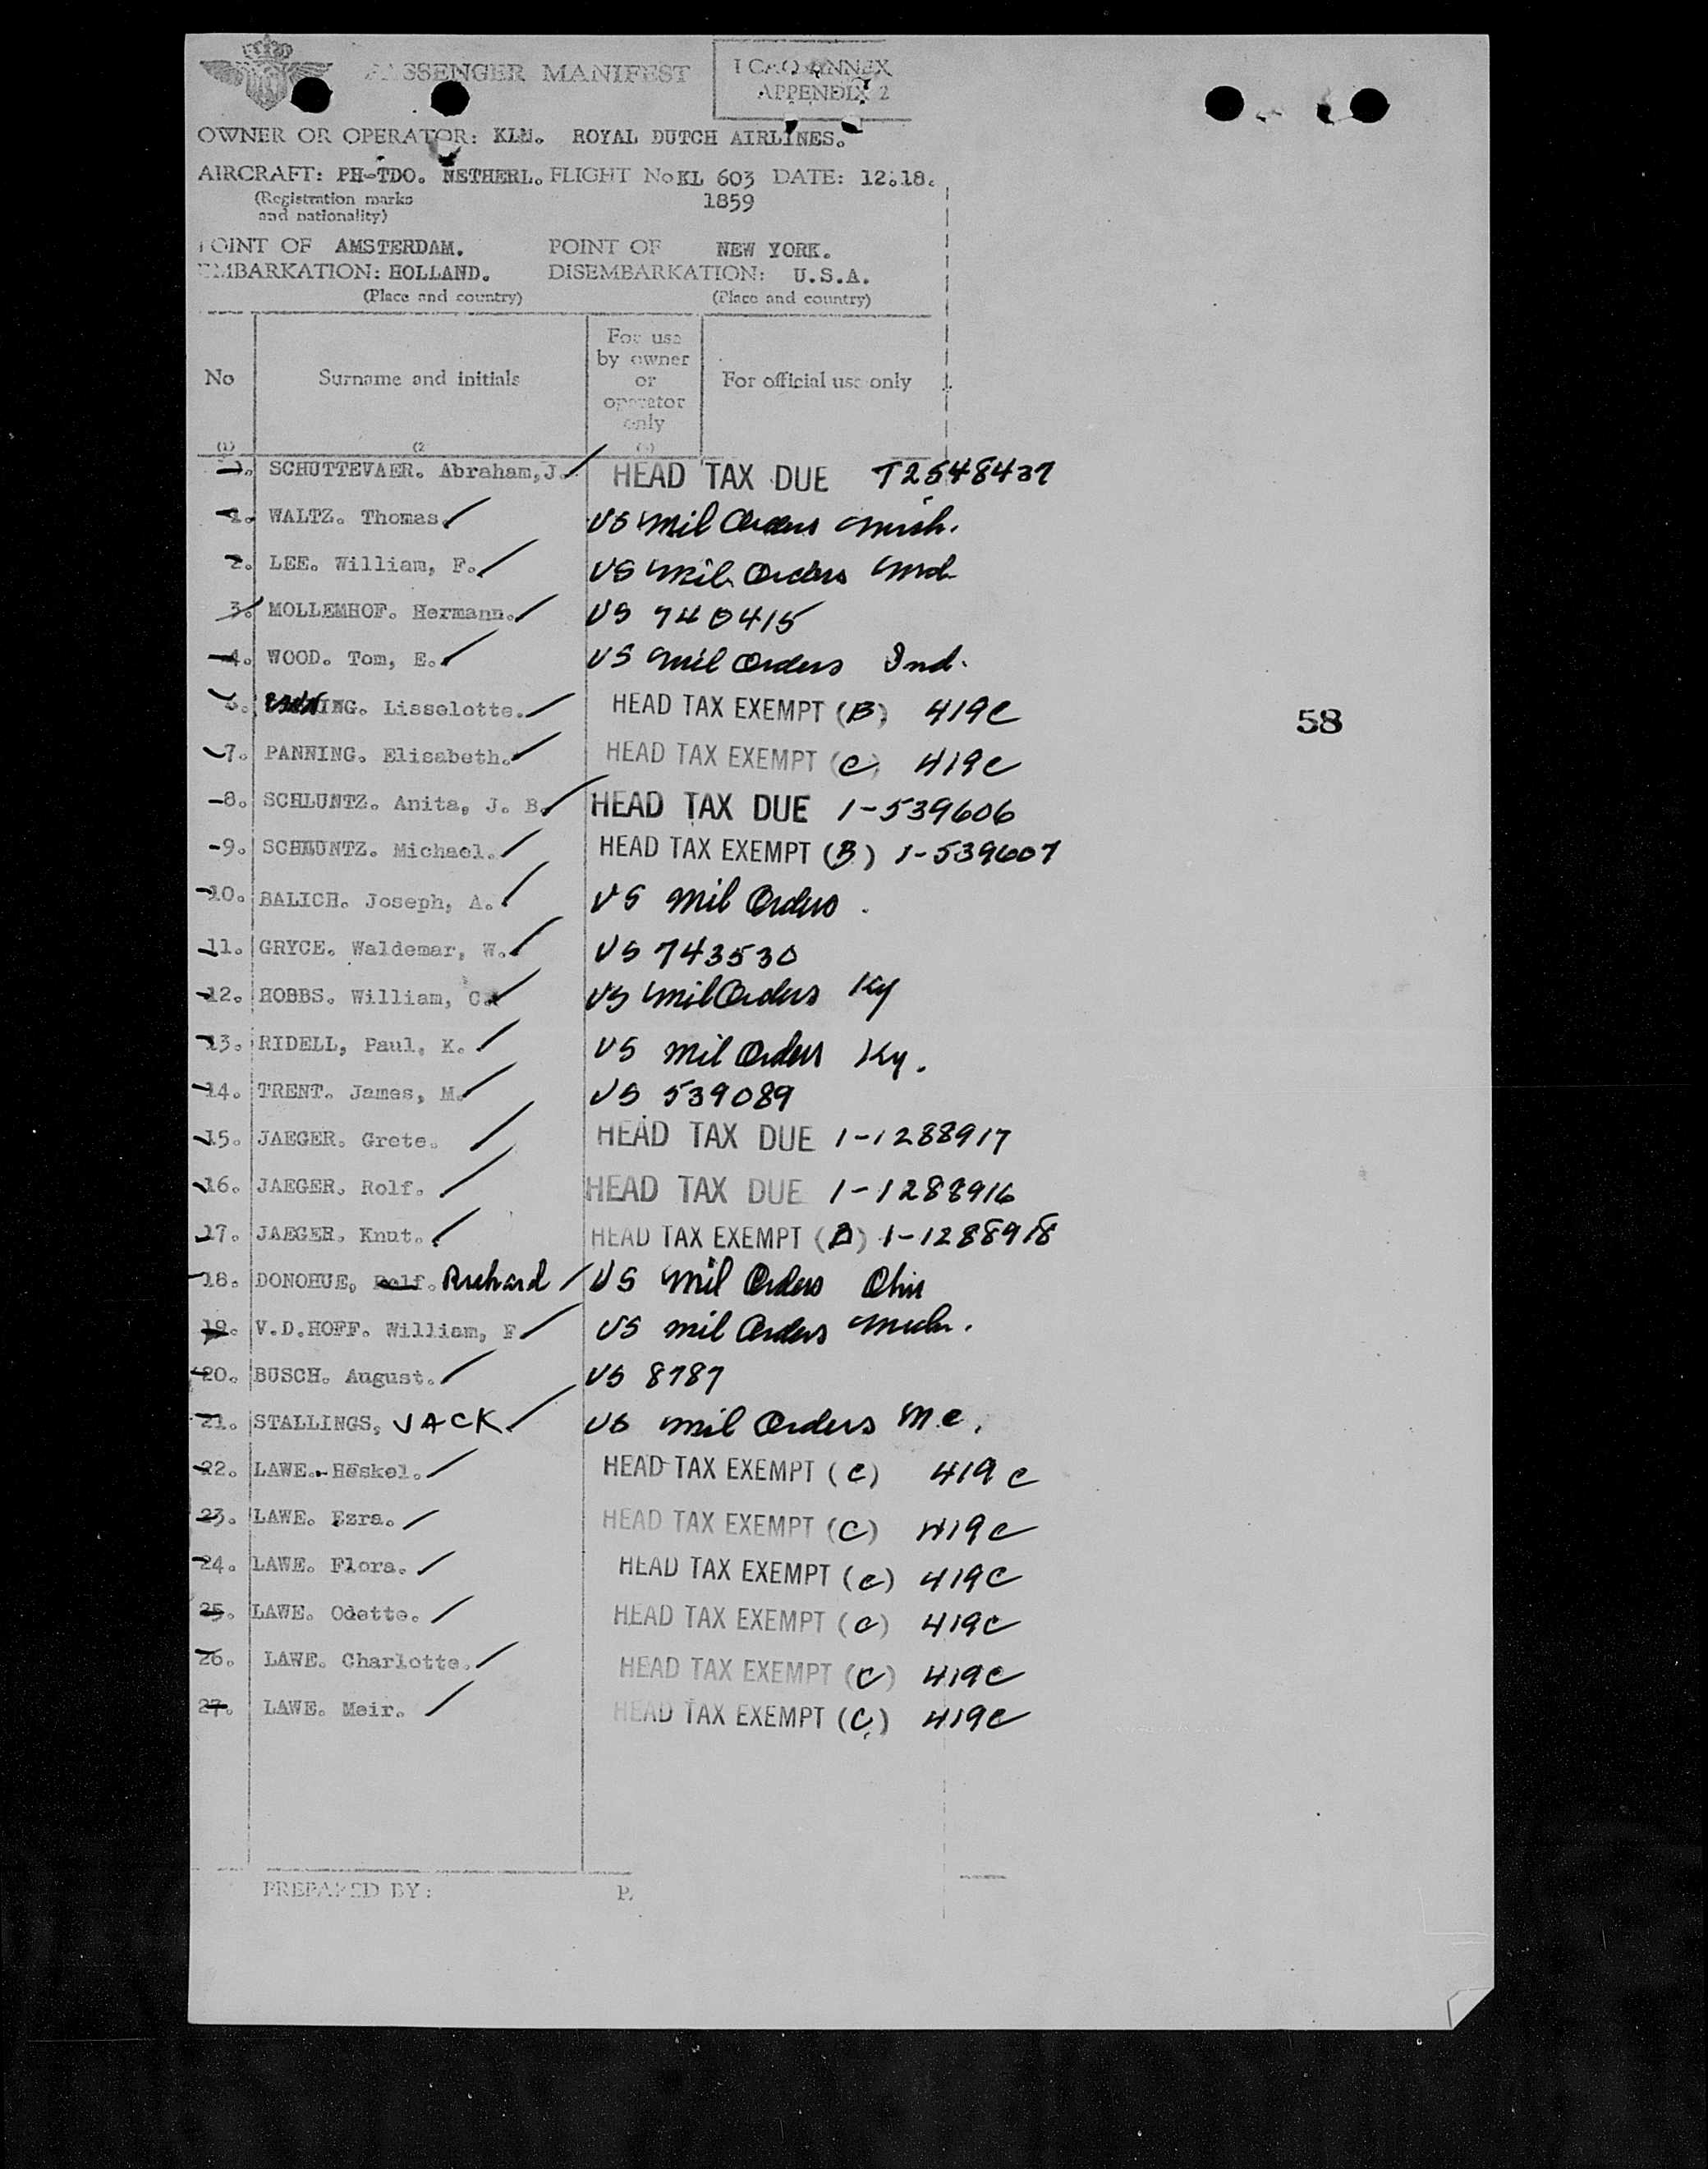 PASSENGER MANIFEST
I CAO ANNEX
APPENDIX 2
OWNER OR OPERATOR: KLM. ROYAL DUTCH AIRLINES.
AIRCRAFT: PH-TDO. NETHERL. FLIGHT No KL 603 DATE: 12.18.
(Registration marks and nationality) 1859
POINT OF EMBARKATION: AMSTERDAM. HOLLAND.
(Place and country)
POINT OF DISEMBARKATION: NEW YORK. U.S.A.
(Place and country)
No Surname and initials For use by owner or operator only For official use only
(1) (2
SCHUTTEVAER. Abraham, J. HEAD TAX DUE T2548437
1. WALTZ. Thomas. US Mil Orders Mich.
2. LEE. William, F. US Mil Orders Md
3. MOLLEMHOF. Hermann. US 740415
4. WOOD. Tom, E. US Mil Orders Ind.
ING. Lisselotte. HEAD TAX EXEMPT (B) 419C
7. PANNING. Elisabeth. HEAD TAX EXEMPT (C) 419C
8. SCHLUNTZ. Anita, J. B. HEAD TAX DUE 1-539606
9. SCHLUNTZ. Michael. HEAD TAX EXEMPT (B) 1-539607
10. BALICH. Joseph, A. US Mil Orders.
11. GRYCE. Waldemar, W. US 743530
12. HOBBS. William, C. US Mil Orders Ky
13. RIDELL, Paul, K. US Mil Orders Ky.
14. TRENT. James, M. US 539089
15. JAEGER. Grete. HEAD TAX DUE 1-1288917
16. JAEGER. Rolf. HEAD TAX DUE 1-1288916
17. JAEGER. Knut. HEAD TAX EXEMPT (B) 1-1288918
18. DONOHUE, Rolf. Richard US Mil Orders Ohio
19. V.D.HOFF. William, F US Mil Orders Mich.
20. BUSCH. August. US 8787
21. STALLINGS, JACK US Mil Orders M.C.
22. LAWE. Heskel. HEAD TAX EXEMPT (C) 419C
23. LAWE. Ezra. HEAD TAX EXEMPT (C) 419C
24. LAWE. Flora. HEAD TAX EXEMPT (C) 419C
25. LAWE. Odette. HEAD TAX EXEMPT (C) 419C
26. LAWE. Charlotte. HEAD TAX EXEMPT (C) 419C
27. LAWE. Meir. HEAD TAX EXEMPT (C) 419C
58
PREPARED BY: P.